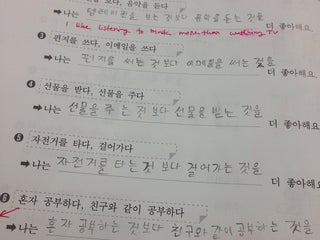 보다, 음악을 듣다
텔레비전을 보는 것보다 음악을 듣는 것을
더 좋아해요.
I like listening to music more than watching TV
③ 편지를 쓰다, 이메일을 쓰다
➡ 나는 편지를 써는 것보다 이메일을 써는 것을
더 좋아해요.
④ 선물을 받다, 선물을 주다
➡ 나는 선물을 주는 것보다 선물을 받는 것을
더 좋아해요.
⑤ 자전거를 타다, 걸어가다
➡ 나는 자전거를 타는 것 보다 걸어가는 것을
더 좋아해요.
⑥ 혼자 공부하다, 친구와 같이 공부하다
➡ 나는 혼자 공부하는 것보다 친구와 같이 공부하는 것을
더 좋아해요.